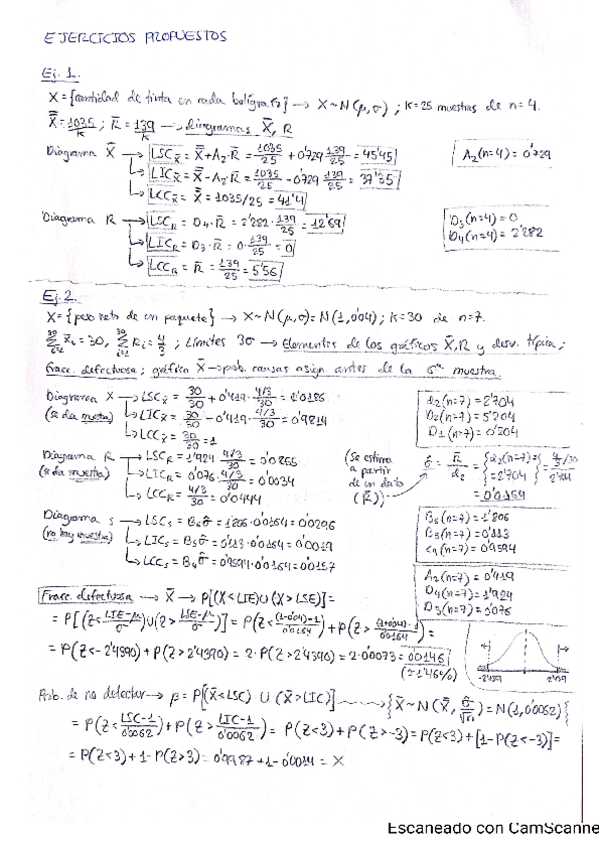 EJERCICIOS PROPUESTOS
Ej. 1.
X = {cantidad de tinta en cada bolígrafo} → X ~ N(μ,σ) ; K=25 muestras de n=4.
X̿ = 1035/K ; R̄ = 139/K → diagramas X̄, R
Diagrama X̄ → LSC_X̄ = X̿ + A₂·R̄ = 1035/25 + 0'729 139/25 = 45'45
A₂(n=4) = 0'729
→ LIC_X̄ = X̿ - A₂·R̄ = 1035/25 - 0'729 139/25 = 37'35
→ LCC_X̄ = X̿ = 1035/25 = 41'4
Diagrama R → LSC_R = D₄·R̄ = 2'282·139/25 = 12'69
D₃(n=4) = 0
D₄(n=4) = 2'282
→ LIC_R = D₃·R̄ = 0·139/25 = 0
→ LCC_R = R̄ = 139/25 = 5'56
Ej. 2.
X = {peso neto de un paquete} → X ~ N(μ,σ) = N(1,0'04) ; K=30 de n=7.
∑ x̄ᵢ = 30, ∑ Rᵢ = 4/3 ; Límites 3σ → Elementos de los gráficos X̄,R y desv. típica ;
Fracc. defectuosa ; gráfico X̄ → prob. causas asign. antes de la muestra.
Diagrama X̄ → LSC_X̄ = 30/30 + 0'419·4/3/30 = 1'0186
(se da muestra) → LIC_X̄ = 30/30 - 0'419·4/3/30 = 0'9814
→ LCC_X̄ = 30/30 = 1
d₂(n=7) = 2'704
D₂(n=7) = 5'204
D₁(n=7) = 0'204
Diagrama R → LSC_R = 1'924 4/3/30 = 0'0855
(se da muestra) → LIC_R = 0'076 4/3/30 = 0'0034
→ LCC_R = 4/3/30 = 0'0444
(Se estima a partir de un dato (R̄))
σ̂ = R̄/d₂ = {d₂(n=7) = 2'704} = 4/3/30/2'704 = 0'0164
Diagrama s → LSC_S = B₆σ̂ = 1'806·0'0164 = 0'0296
(no hay muestra) → LIC_S = B₅σ̂ = 0'113·0'0164 = 0'0019
→ LCC_S = σ̂ = 0'9594·0'0164 = 0'0157
B₆(n=7) = 1'806
B₅(n=7) = 0'113
c₄(n=7) = 0'9594
A₂(n=7) = 0'419
D₄(n=7) = 1'924
D₃(n=7) = 0'076
Fracc. defectuosa → X̄ → P[(X<LIE)∪(X>LSE)] =
= P[(Z<LIE-μ/σ)∪(Z>LSE-μ/σ)] = P(Z<(1-0'04)-1/0'0164) + P(Z>(1+0'04)-1/0'0164) =
= P(Z<-2'4390) + P(Z>2'4390) = 2·P(Z>2'4390) = 2·0'0073 = 0'0146
(≈1'46%)
-2'439 2'439
Prob. de no detectar → β = P[(X̄<LSC) ∪ (X̄>LIC)] → {X̄ ~ N(X̿, σ̂/√n) = N(1,0'0062)}
= P(Z<LSC-1/0'0062) + P(Z>LIC-1/0'0062) = P(Z<3) + P(Z>-3) = P(Z<3) + [1-P(Z<-3)] =
= P(Z<3) + 1 - P(Z>3) = 0'9987 + 1 - 0'0014 = X
Escaneado con CamScanne